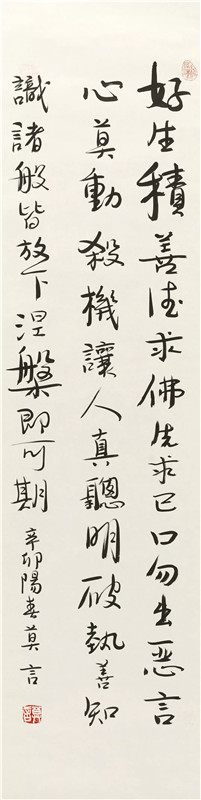 好生積善德求佛先求己口勿出惡言
心莫動殺機讓人真聰明破執善知
識諸般皆放下涅槃即可期
辛卯陽春莫言